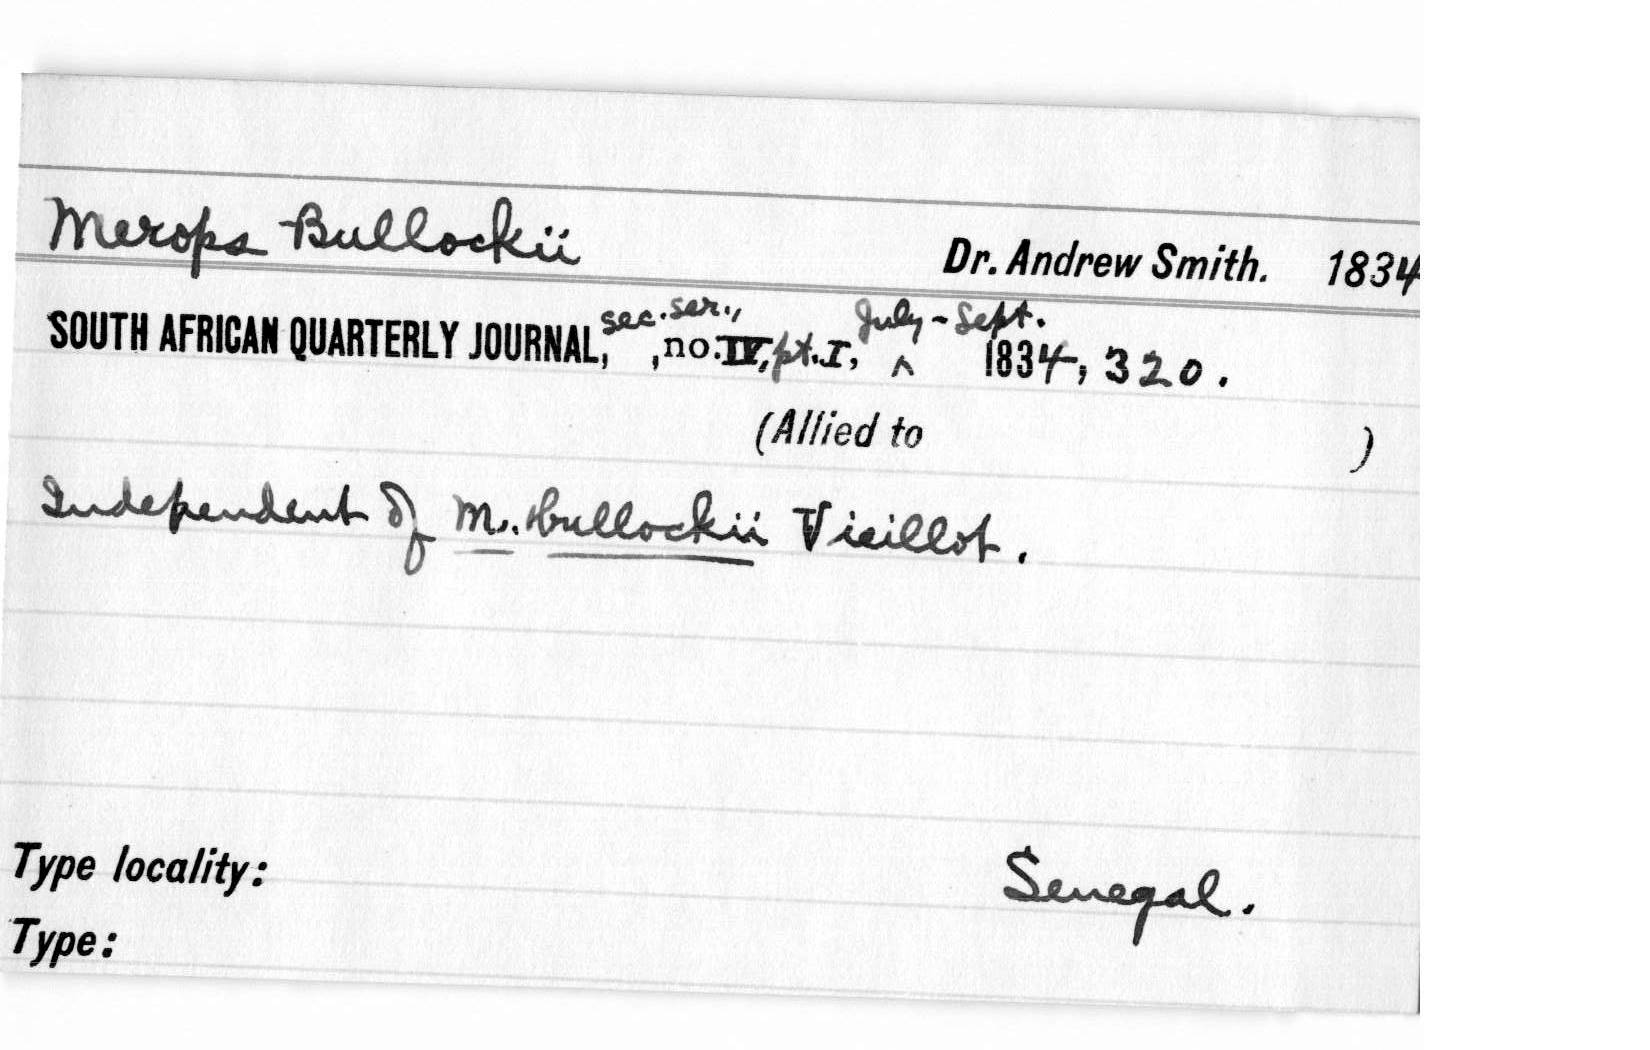 Merops Bullockii
Dr. Andrew Smith. 1834
SOUTH AFRICAN QUARTERLY JOURNAL, sec. ser., ,no. IV, pt. I, ^ July-Sept. 1834, 320.
(Allied to )
Independent of M. bullockii Vieillot.
Type locality: Senegal.
Type: